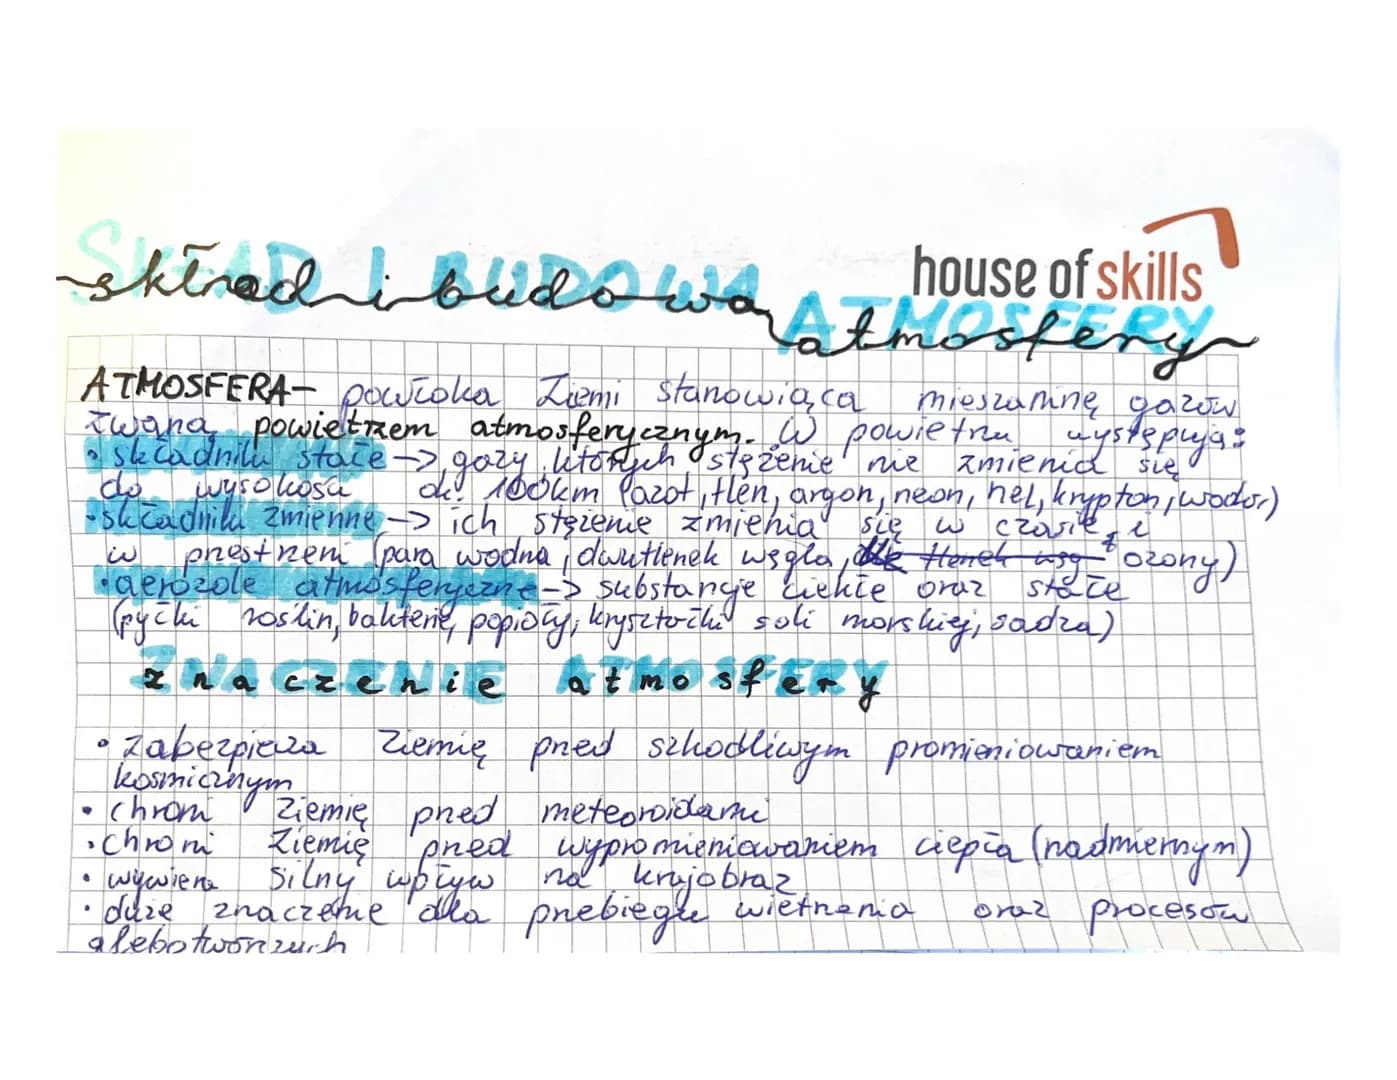 SKŁAD I BUDOWA ATMOSFERY
house of skills
skład i budowa atmosfery
ATMOSFERA- powłoka Ziemi stanowiąca mieszaninę gazów
zwaną powietrzem atmosferycznym. W powietrzu występują:
• składniki stałe -> gazy, których stężenie nie zmienia się
do wysokości ok. 100km (azot, tlen, argon, neon, hel, krypton, wodór)
• składniki zmienne -> ich stężenie zmienia się w czasie i
w przestrzeni (para wodna, dwutlenek węgla, ozony)
• aerozole atmosferyczne -> substancje ciekłe oraz stałe
(pyłki roślin, bakterie, popioły, kryształki soli morskiej, sadza)
ZNACZENIE ATMOSFERY
znaczenie atmosfery
• zabezpiecza Ziemię przed szkodliwym promieniowaniem
kosmicznym
• chroni Ziemię przed meteoroidami
• chroni Ziemię przed wypromieniowaniem ciepła (nadmiernym)
• wywiera silny wpływ na krajobraz
• duże znaczenie dla przebiegu wietrzenia oraz procesów
glebotwórczych